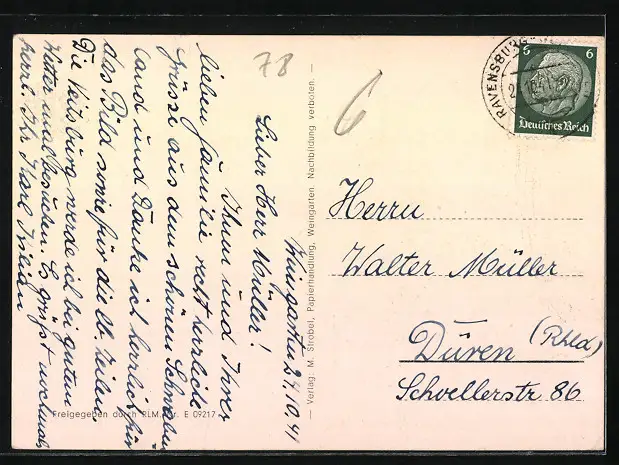 Weingarten 24.10.41
Lieber Herr Müller!
Ihnen und Ihrer
lieben Familie recht herzliche
Grüsse aus dem schönen Schwaben-
land und Danke ich herzlich für
das Bild sowie für die lb. Zeilen.
Die Veitsburg werde ich bei gutem
Wetter mal besuchen. Es grüßt nochmals
herzl. Ihr Karl Kilian
78
6
— Verlag: M. Strobel, Papierhandlung, Weingarten. Nachbildung verboten. —
Freigegeben durch RLM. Nr. E 09217
RAVENSBURG
6 6
Deutsches Reich
Herrn
Walter Müller
Düren (Rhld)
Schoellerstr. 86